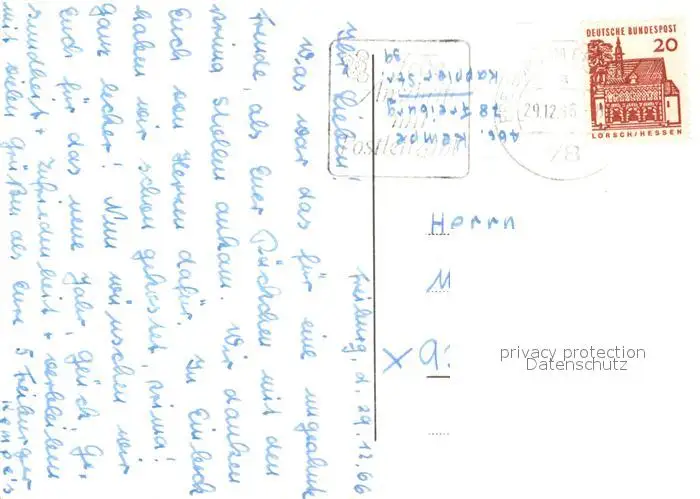 Freiburg, d. 29.12.66
Ihr Lieben!
Was war das für eine ungeahnte
Freude, als Euer Päckchen mit den
Stollen ankam. Wir danken
Euch von Herzen dafür. Ein Eckch
haben wir schon gekostet, prima!
ganz lecker! Nun wünschen wir
Euch für das neue Jahr, Glück, Ge-
sundheit + Zufriedenheit + verbleiben
mit vielen Grüßen als eure 5 Freiburger
Kempe's
Abs. Kempe
78 Freiburg
Kappler Str.
59
Postleitzahl
29.12.66
78
DEUTSCHE BUNDESPOST
20
LORSCH/HESSEN
Herrn
M
X 9
privacy protection
Datenschutz